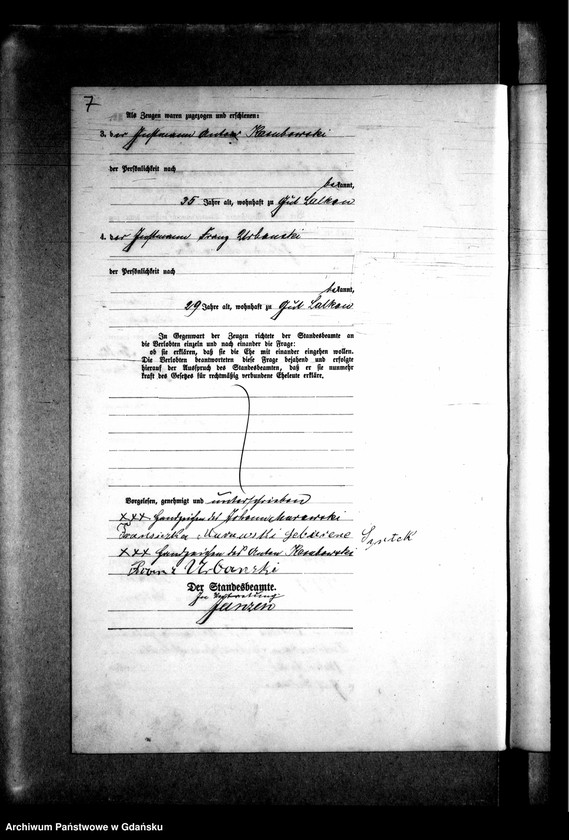 7
Als Zeugen waren zugezogen und erschienen:
3. der Instmann Anton Kasubowski
der Persönlichkeit nach
bekannt,
35 Jahre alt, wohnhaft zu Gut Lalkau
4. der Instmann Franz Urbanski
der Persönlichkeit nach
bekannt,
29 Jahre alt, wohnhaft zu Gut Lalkau
In Gegenwart der Zeugen richtete der Standesbeamte an
die Verlobten einzeln und nach einander die Frage:
ob sie erklären, daß sie die Ehe mit einander eingehen wollen.
Die Verlobten beantworteten diese Frage bejahend und erfolgte
hierauf der Ausspruch des Standesbeamten, daß er sie nunmehr
kraft des Gesetzes für rechtmäßig verbundene Eheleute erkläre.
Vorgelesen, genehmigt und unterschrieben
xxx Handzeichen des Johann Murawski
Franciszka Murawski geborene
xxx Handzeichen des Anton Kasubowski
Franz Urbanski
Der Standesbeamte.
In Vertretung
Janzen
Archiwum Państwowe w Gdańsku